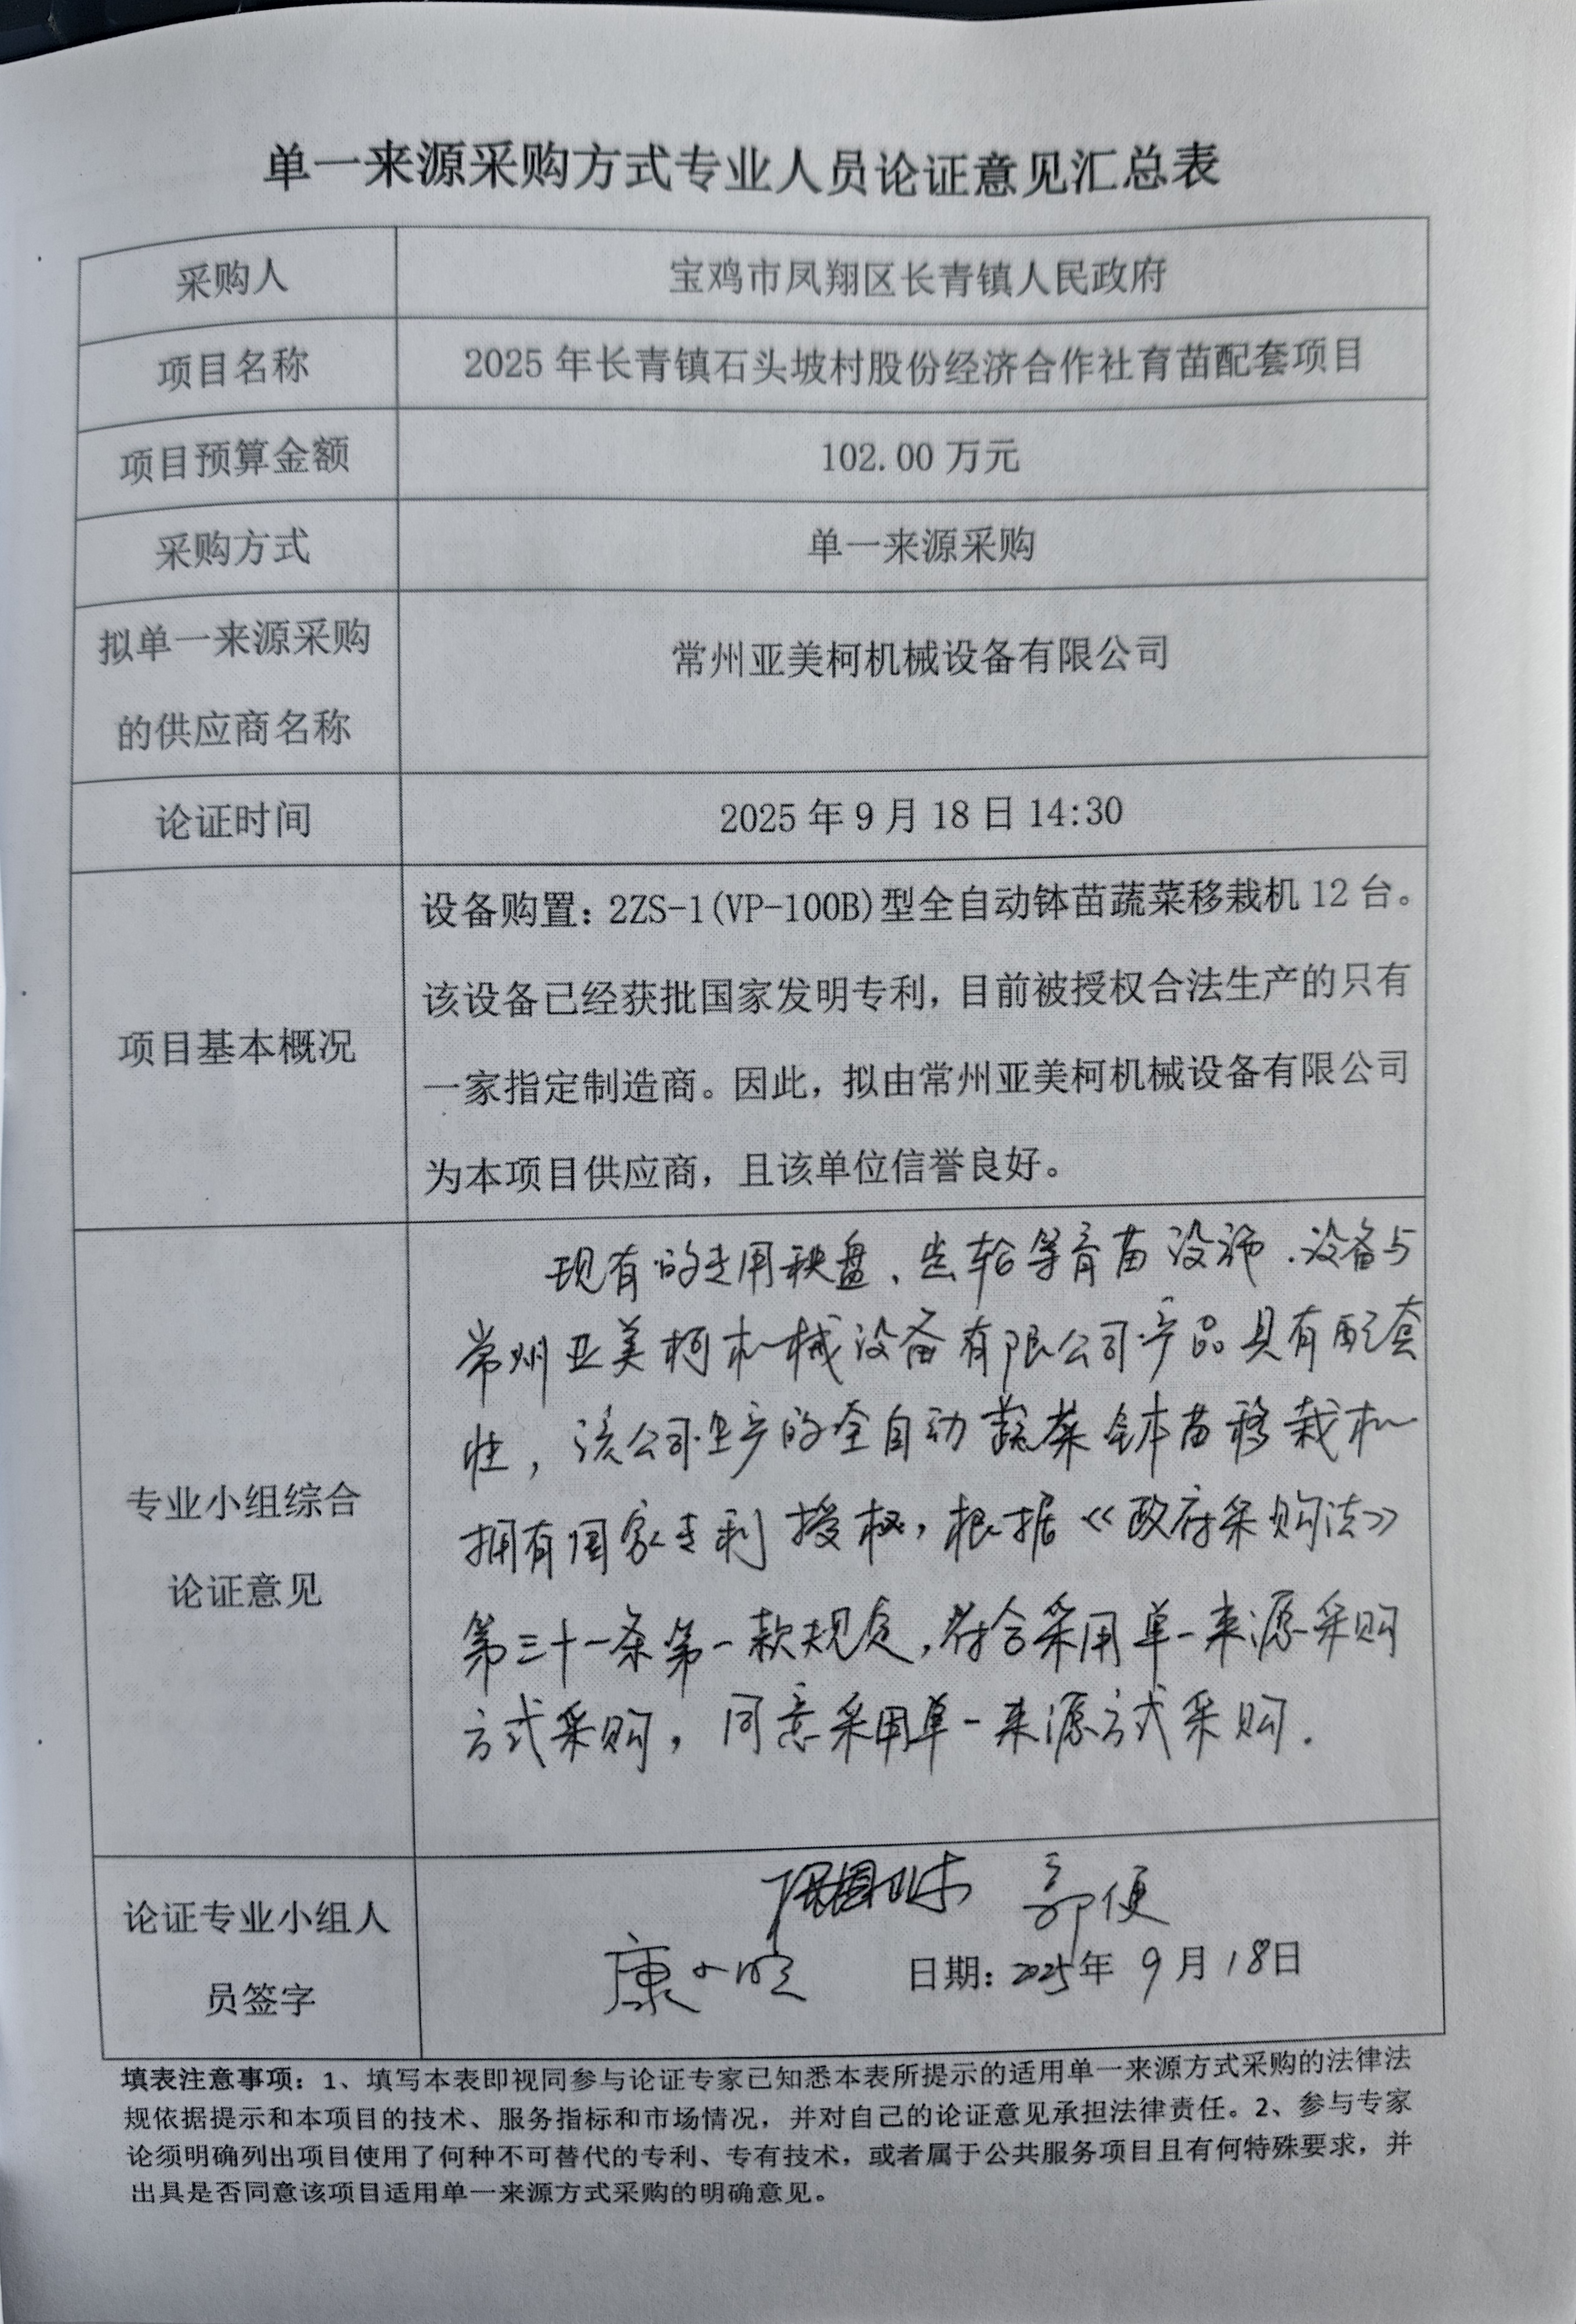 单一来源采购方式专业人员论证意见汇总表
采购人
宝鸡市凤翔区长青镇人民政府
项目名称
2025年长青镇石头坡村股份经济合作社育苗配套项目
项目预算金额
102.00万元
采购方式
单一来源采购
拟单一来源采购
的供应商名称
常州亚美柯机械设备有限公司
论证时间
2025年9月18日14:30
项目基本概况
设备购置：2ZS-1(VP-100B)型全自动钵苗蔬菜移栽机12台。
该设备已经获批国家发明专利，目前被授权合法生产的只有
一家指定制造商。因此，拟由常州亚美柯机械设备有限公司
为本项目供应商，且该单位信誉良好。
专业小组综合
论证意见
现有的专用秧盘、齿轮等育苗设施、设备与
常州亚美柯机械设备有限公司产品具有配套
性，该公司生产的全自动蔬菜钵苗移栽机
拥有国家专利授权，根据《政府采购法》
第三十一条第一款规定，符合采用单一来源采购
方式采购，同意采用单一来源方式采购.
论证专业小组人
员签字
郭便
康小
日期：2025年9月18日
填表注意事项：1、填写本表即视同参与论证专家已知悉本表所提示的适用单一来源方式采购的法律法
规依据提示和本项目的技术、服务指标和市场情况，并对自己的论证意见承担法律责任。2、参与专家
论须明确列出项目使用了何种不可替代的专利、专有技术，或者属于公共服务项目且有何特殊要求，并
出具是否同意该项目适用单一来源方式采购的明确意见。